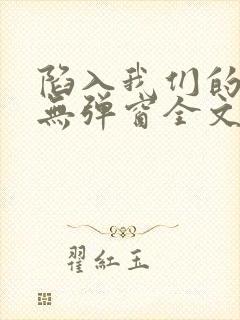 陷入我们的
無弹窗全文
翟紅玉